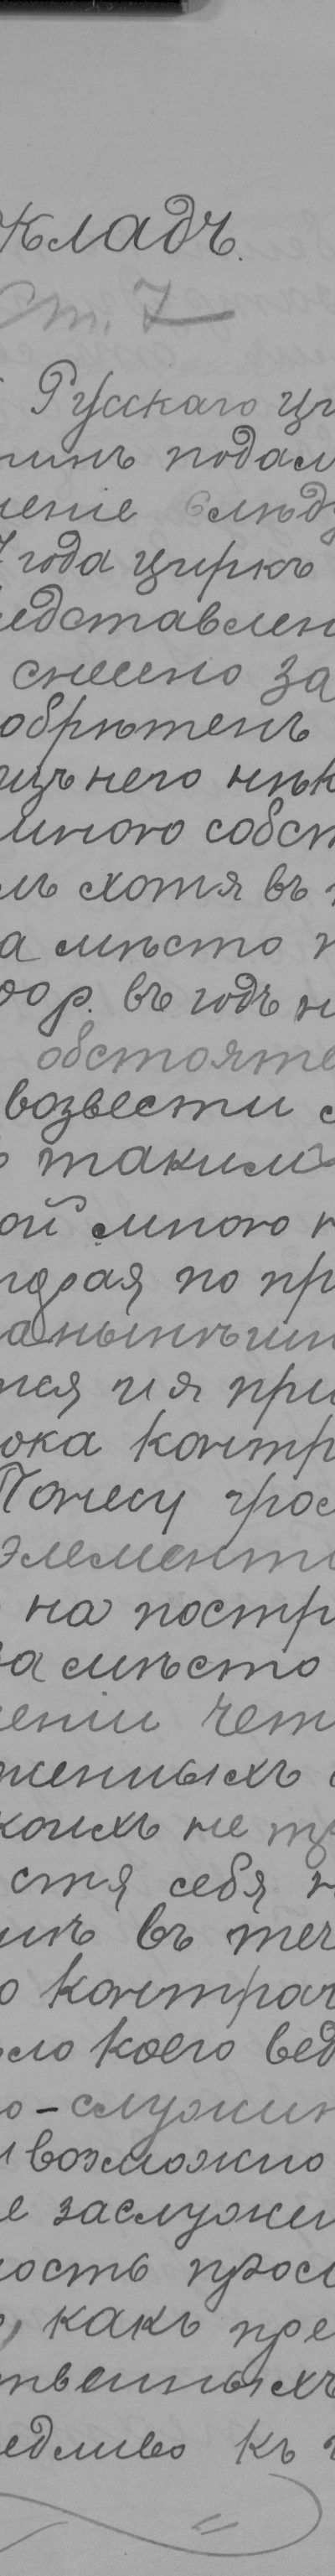 кладъ.
Ст. 7
Русскаго ци
тинъ подал
ленiе слѣд
7 года циркъ
едставлен
снесено за
обрѣтенъ
изъ него нѣк
много собст
мъ хотя въ
а мѣсто
00 р. въ годъ н
обстояте
возвести
таким
ой мною н
торая, по пр
а нынѣшн
тся и я при
ока контр
Понесу гро
элементо
на постр
а мѣсто
ченiи чет
женныхъ
коихъ не
стя себя н
никъ въ теч
о контрак
ло коего вед
о-служин
и возможно
е заслужен
ность прос
, какъ пре
твенныхъ
едливо къ